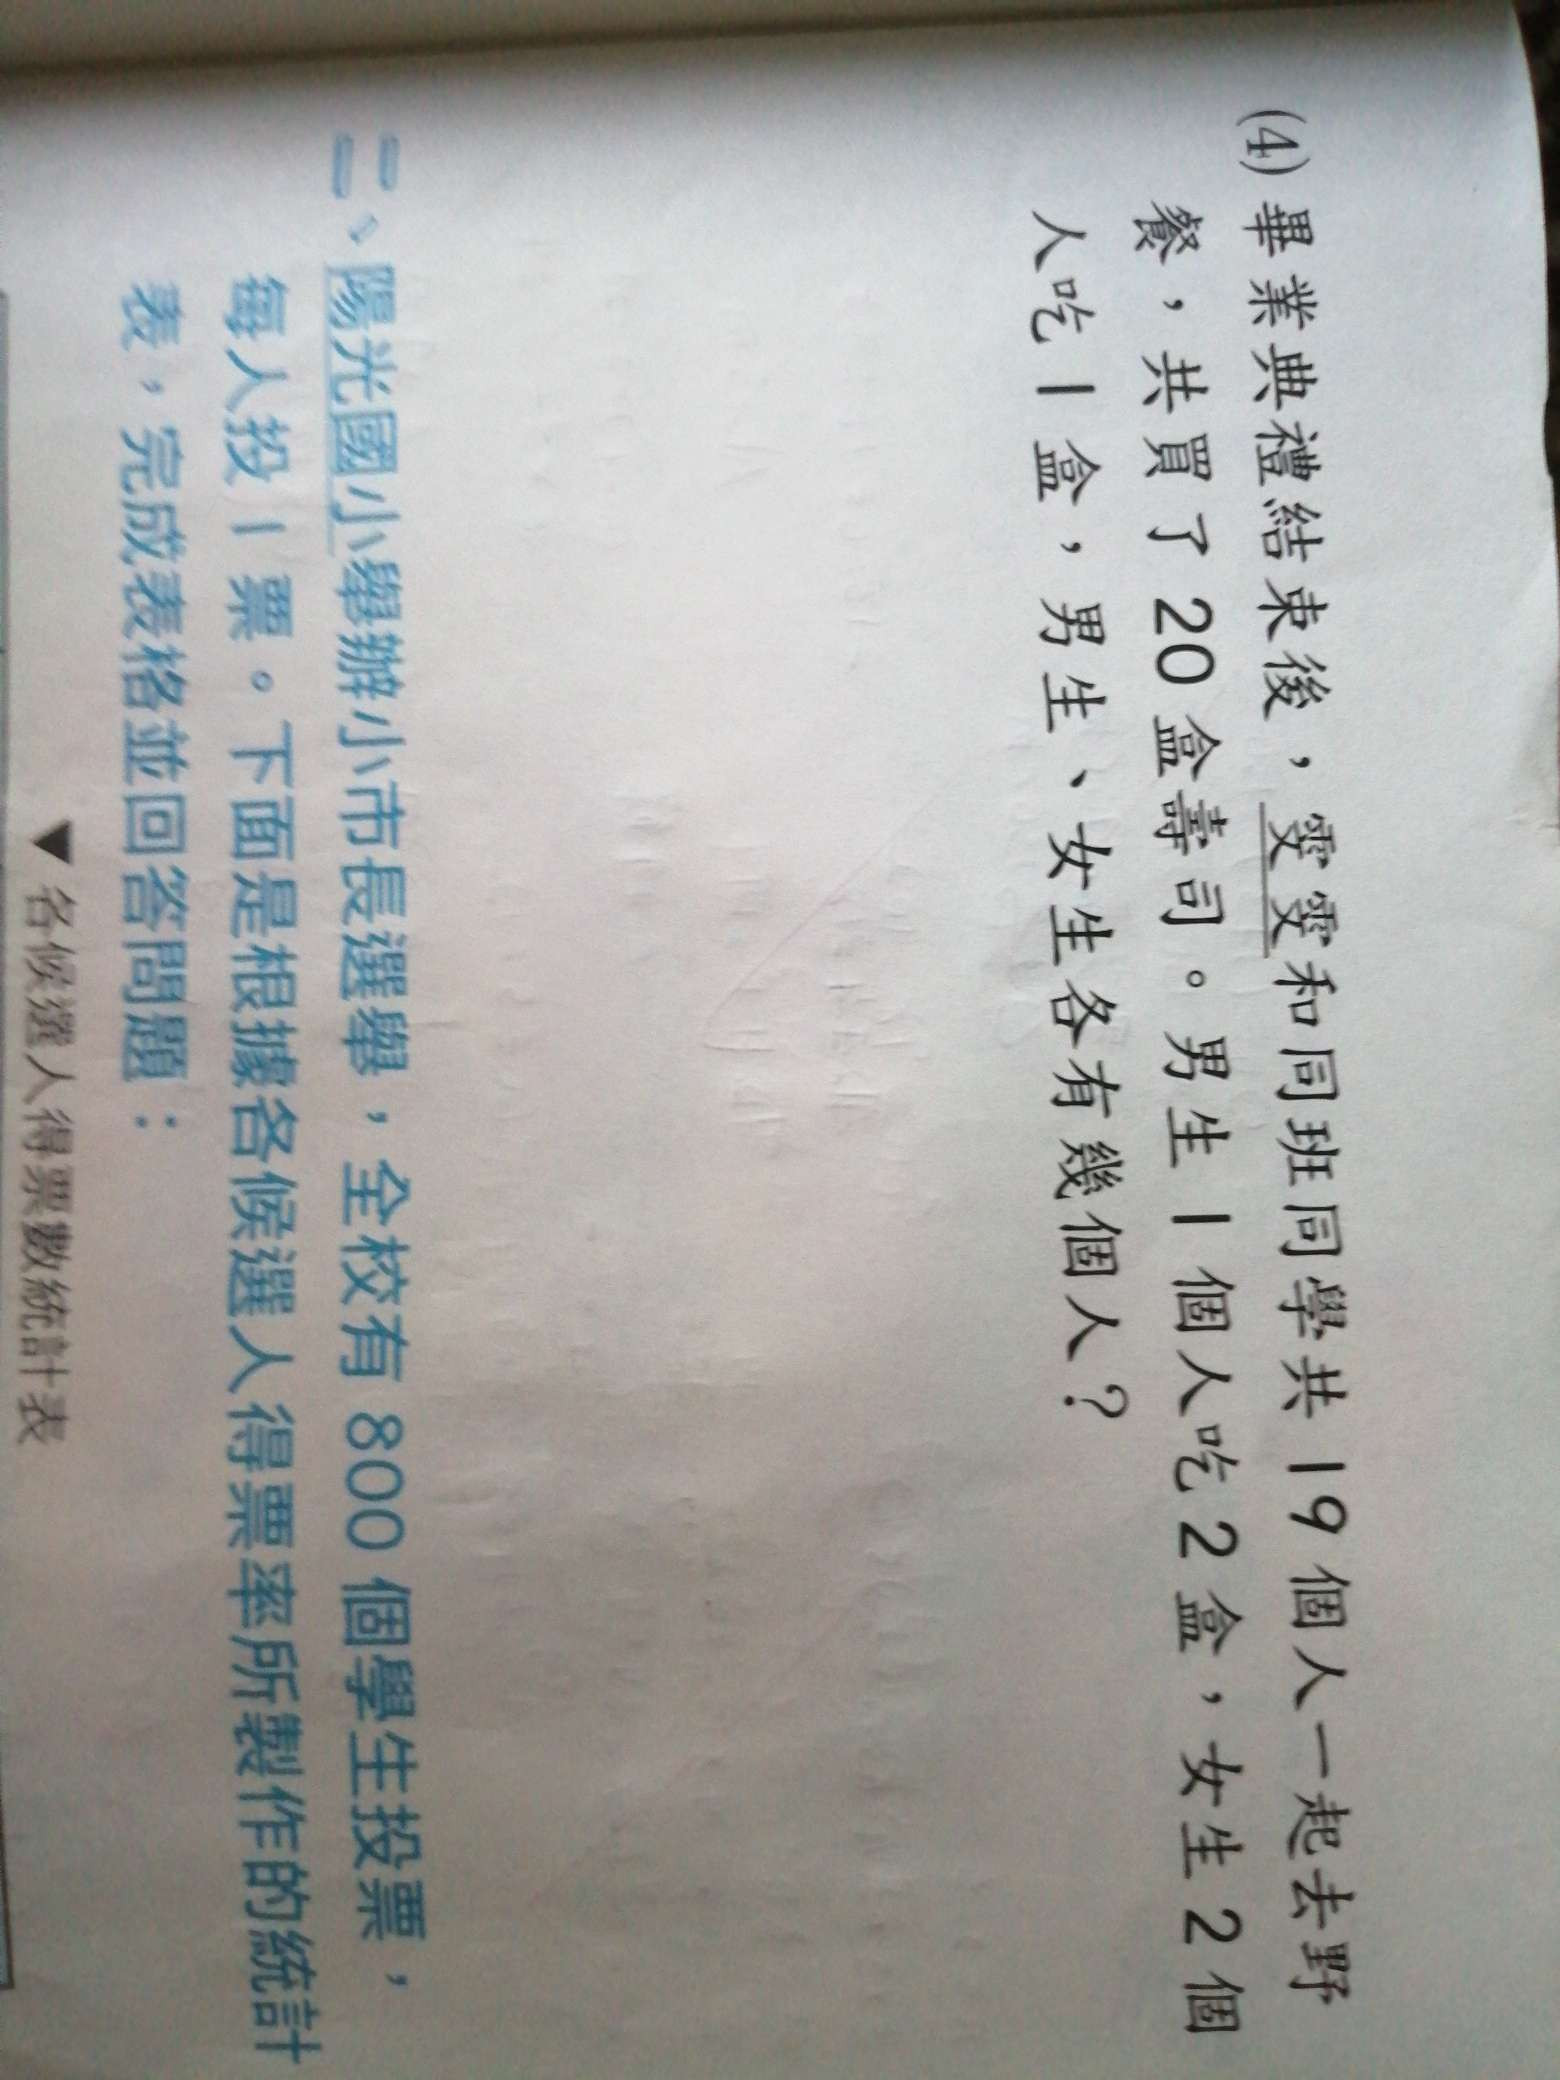 (4) 畢業典禮結束後，雯雯和同班同學共 19 個人一起去野
餐，共買了 20 盒壽司。男生 1 個人吃 2 盒，女生 2 個
人吃 1 盒，男生、女生各有幾個人？
二、陽光國小舉辦小市長選舉，全校有 800 個學生投票，
每人投 1 票。下面是根據各候選人得票率所製作的統計
表，完成表格並回答問題：
▼各候選人得票數統計表